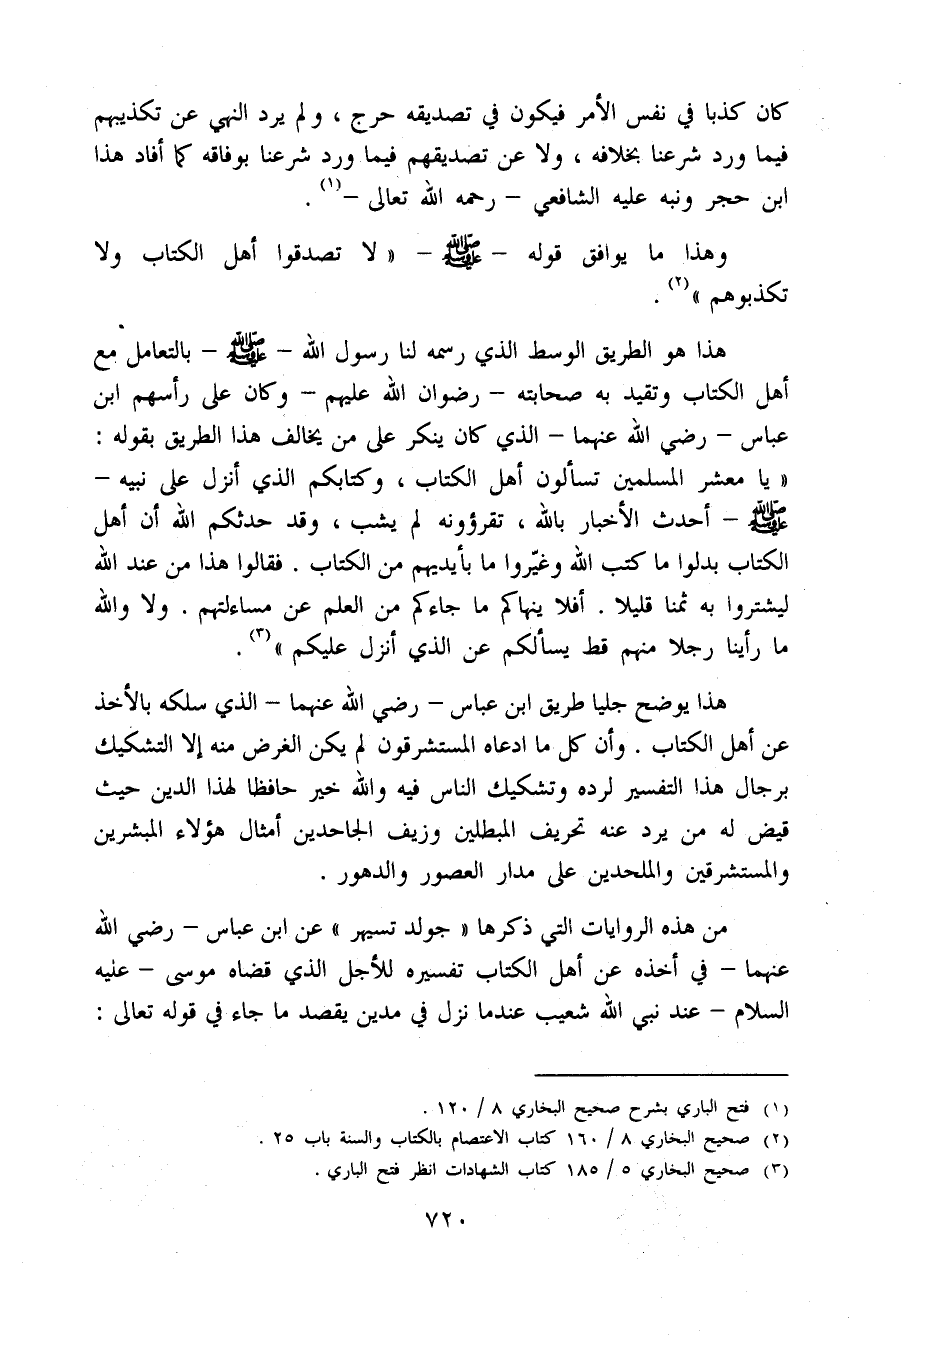 كان كذبا في نفس الأمر فيكون في تصديقه حرج ، ولم يرد النهي عن تكذيبهم
فيما ورد شرعنا بخلافه ، ولا عن تصديقهم فيما ورد شرعنا بوفاقه كما أفاد هذا
ابن حجر ونبه عليه الشافعي – رحمه الله تعالى –(١) .
وهذا ما يوافق قوله – ﷺ – « لا تصدقوا أهل الكتاب ولا
تكذبوهم »(٢) .
هذا هو الطريق الوسط الذي رسمه لنا رسول الله – ﷺ – بالتعامل مع
أهل الكتاب وتقيد به صحابته – رضوان الله عليهم – وكان على رأسهم ابن
عباس – رضي الله عنهما – الذي كان ينكر على من يخالف هذا الطريق بقوله :
« يا معشر المسلمين تسألون أهل الكتاب ، وكتابكم الذي أنزل على نبيه –
ﷺ – أحدث الأخبار بالله ، تقرؤونه لم يشب ، وقد حدثكم الله أن أهل
الكتاب بدلوا ما كتب الله وغيّروا ما بأيديهم من الكتاب . فقالوا هذا من عند الله
ليشتروا به ثمنا قليلا . أفلا ينهاكم ما جاءكم من العلم عن مساءلتهم . ولا والله
ما رأينا رجلا منهم قط يسألكم عن الذي أنزل عليكم »(٣) .
هذا يوضح جليا طريق ابن عباس – رضي الله عنهما – الذي سلكه بالأخذ
عن أهل الكتاب . وأن كل ما ادعاه المستشرقون لم يكن الغرض منه إلا التشكيك
برجال هذا التفسير لرده وتشكيك الناس فيه والله خير حافظا لهذا الدين حيث
قيض له من يرد عنه تحريف المبطلين وزيف الجاحدين أمثال هؤلاء المبشرين
والمستشرقين والملحدين على مدار العصور والدهور .
من هذه الروايات التي ذكرها « جولد تسيهر » عن ابن عباس – رضي الله
عنهما – في أخذه عن أهل الكتاب تفسيره للأجل الذي قضاه موسى – عليه
السلام – عند نبي الله شعيب عندما نزل في مدين يقصد ما جاء في قوله تعالى :
(١) فتح الباري بشرح صحيح البخاري ٨ / ١٢٠ .
(٢) صحيح البخاري ٨ / ١٦٠ كتاب الاعتصام بالكتاب والسنة باب ٢٥ .
(٣) صحيح البخاري ٥ / ١٨٥ كتاب الشهادات انظر فتح الباري .
٧٢٠